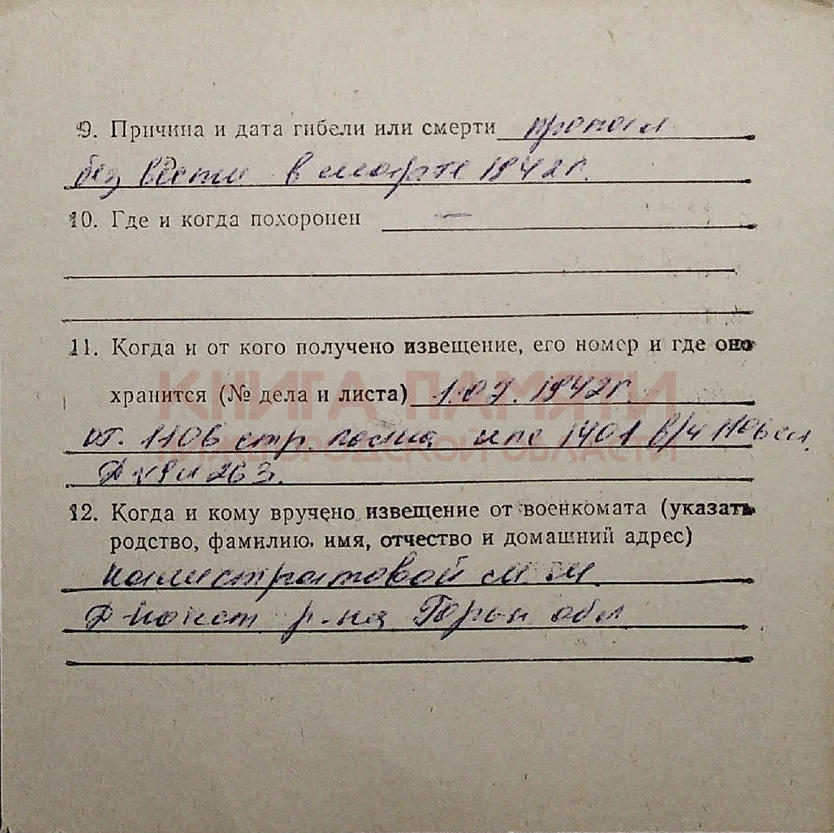 9. Причина и дата гибели или смерти пропал
без вести в марте 1942 г.
10. Где и когда похоронен —
11. Когда и от кого получено извещение, его номер и где оно
хранится (№ дела и листа) 1.07.1942 г.
КНИГА ПАМЯТИ
НИЖЕГОРОДСКОЙ ОБЛАСТИ
от 1106 стр. полка ппс 1401 в/ч
263.
12. Когда и кому вручено извещение от военкомата (указать
родство, фамилию, имя, отчество и домашний адрес)
Калистратовой М. М.
р-на Горьк обл